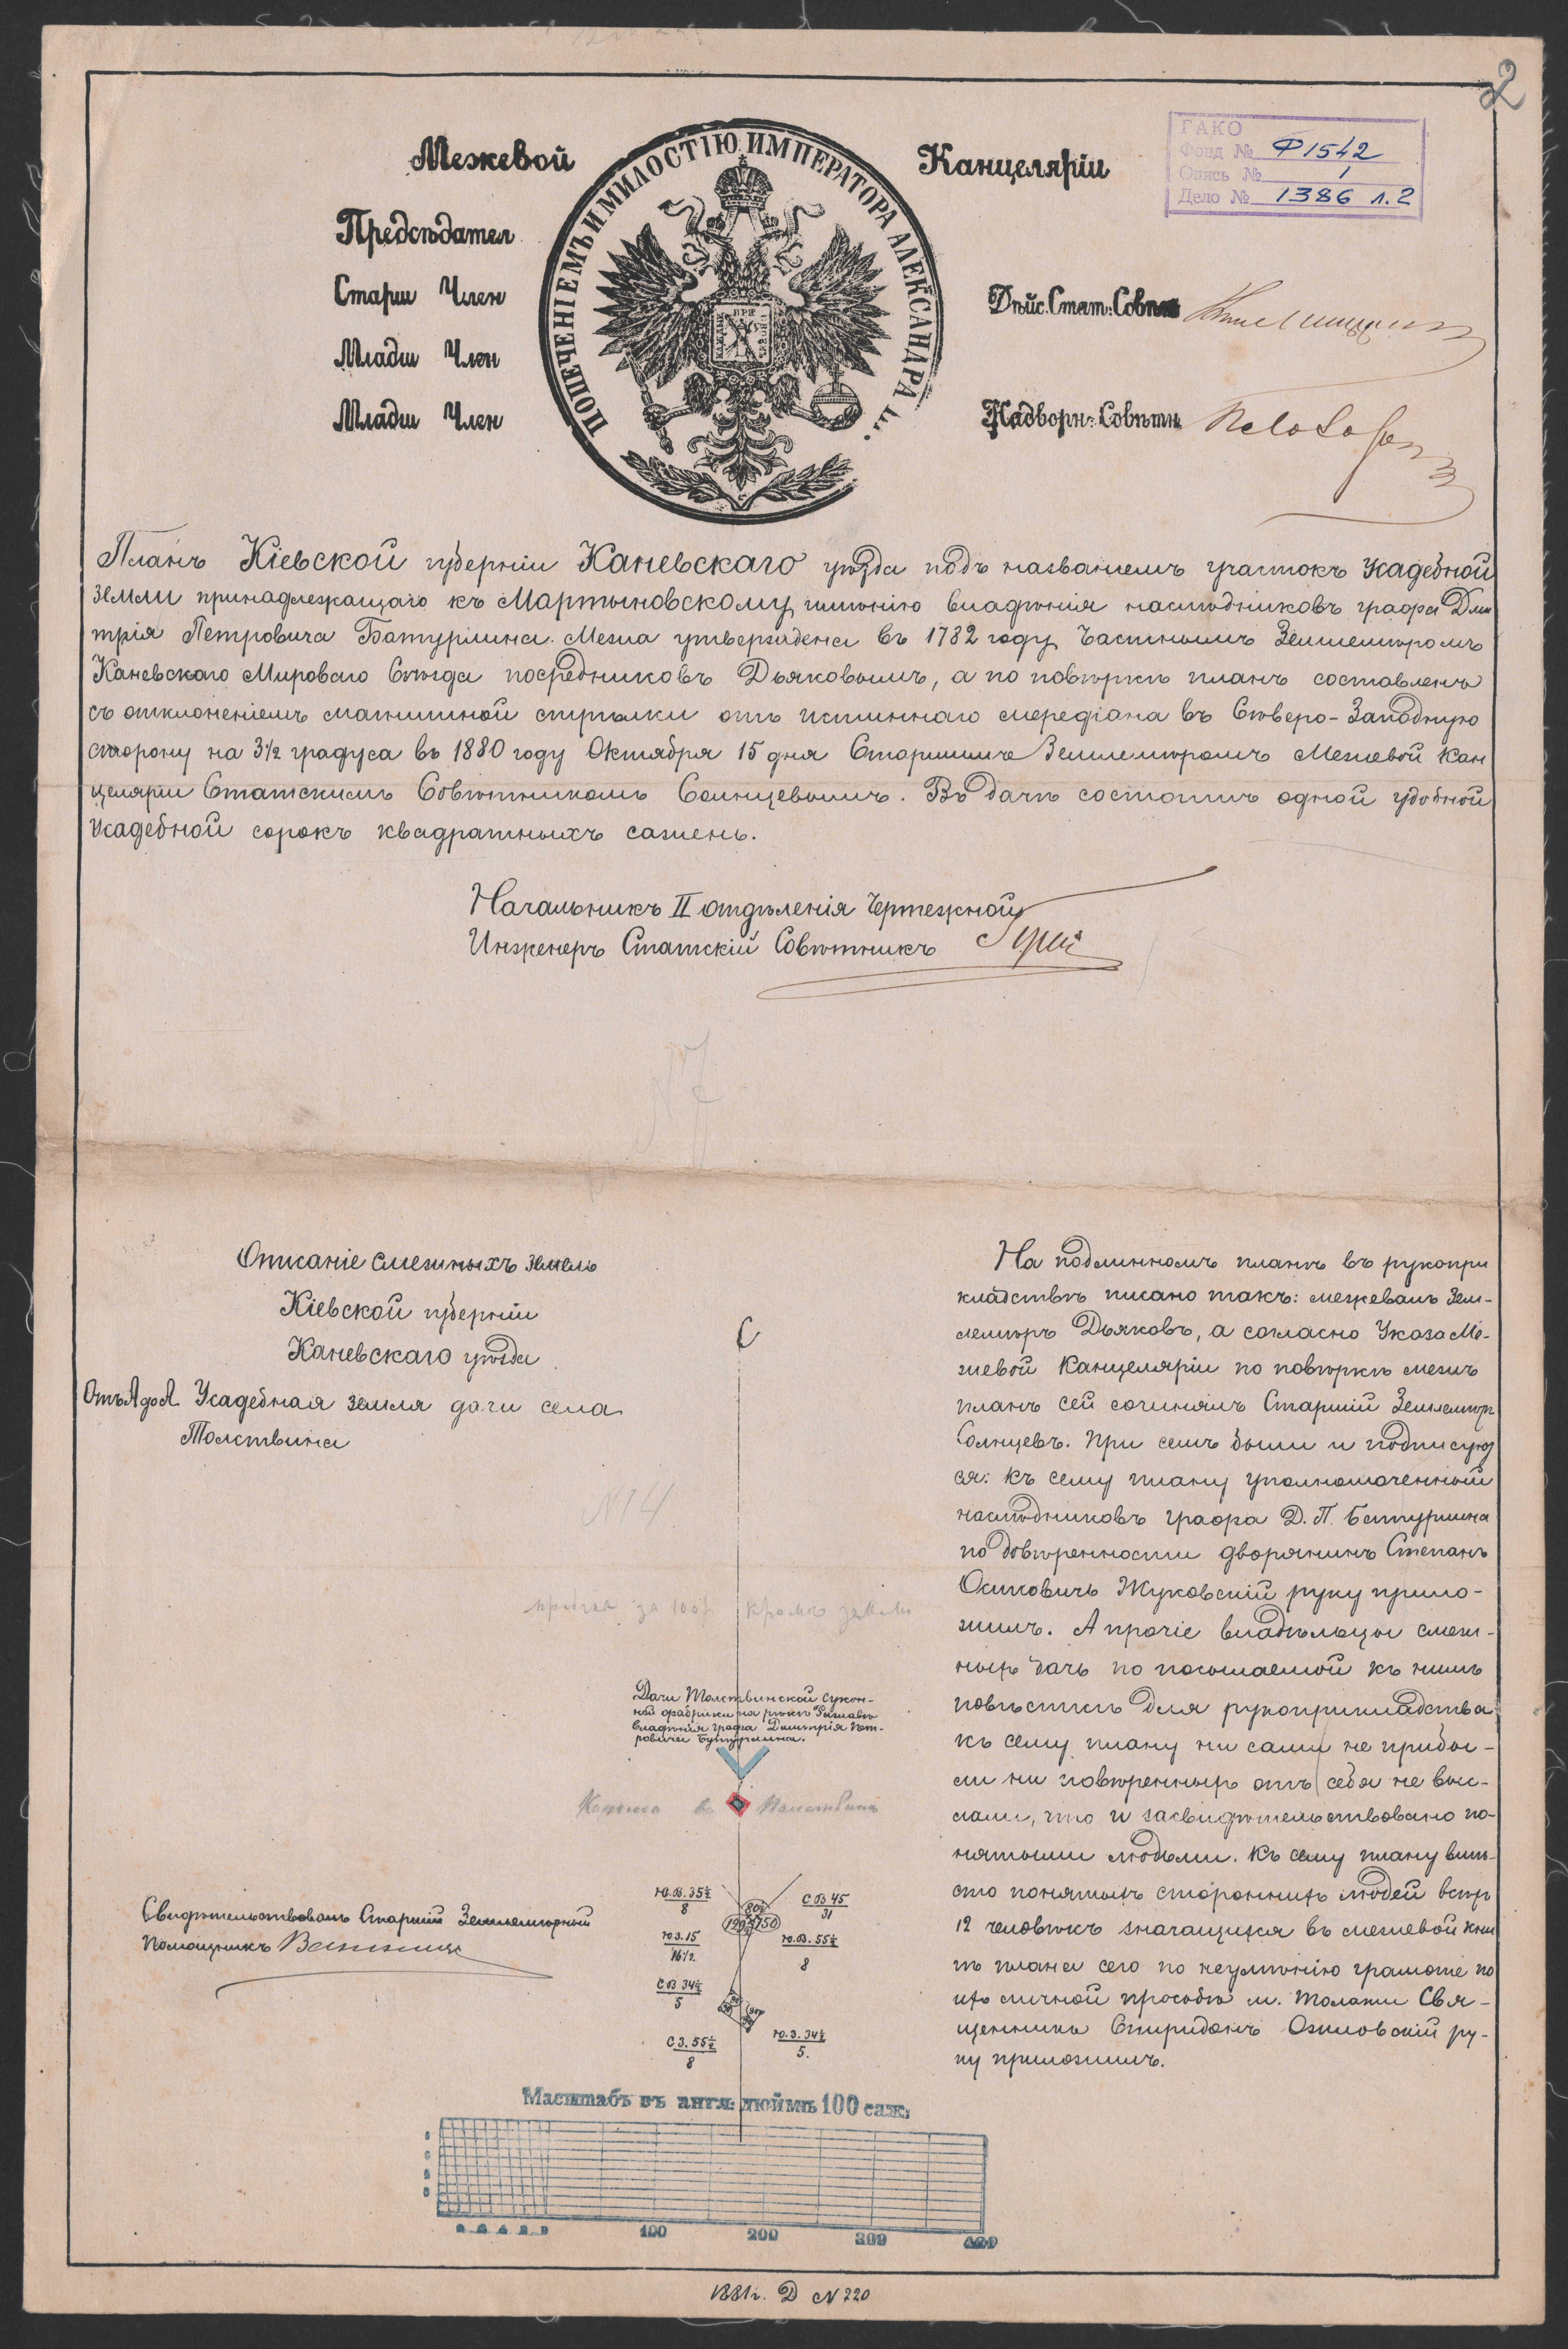 2
ГАКО
Фонд № Ф1542
Опись № 1
Дело № 1386 л.2
Межевой Канцеляріи
ПОПЕЧЕНІЕМЪ И МИЛОСТІЮ ИМПЕРАТОРА АЛЕКСАНДРА II.
Предсѣдател
Старш Член
Дѣйс. Стат: Совѣт
Младш Член
Младш Член
Надворн: Совѣтн
Планъ Кіевской губерніи Каневскаго уѣзда подъ названіемъ участокъ усадебной
земли принадлежащаго къ Мартыновскому имѣнію владѣнія наслѣдниковъ графа Дми
трія Петровича Батурлина. Межа утверждена въ 1782 году Частнымъ Землемѣромъ
Каневскаго Мироваго Съѣзда посредниковъ Дьяковымъ, а по повѣркѣ планъ составленъ
съ отклоненіемъ магнитной стрѣлки отъ истиннаго меридіана въ Сѣверо-Западную
сторону на 3½ градуса въ 1880 году Октября 15 дня Старшимъ Землемѣромъ Межевой Кан
целяріи Статскимъ Совѣтникомъ Солнцевымъ. Въ дачѣ состоитъ одной удобной
усадебной сорокъ квадратныхъ сажень.
Начальникъ II отдѣленія Чертежной
Инженеръ Статскій Совѣтникъ
№7
Описаніе смежныхъ земель
Кіевской губерніи
Каневскаго уѣзда
Отъ А до А Усадебная земля дачи села
Толствина
С
№14
за 100 р кромѣ земли
Дачи Толствинской сукон-
ной фабрики на рѣкѣ
владѣнія графа Дмитрія Пет-
ровича Бутурлина.
въ
Ю.В. 35½
8
С В 45
31
Ю З. 15
16½
Ю.В. 55½
8
С В 34½
5
С З. 55½
8
Ю.З. 34½
5.
Свидѣтельствовалъ Старшій Землемѣрный
Помощникъ
На подлинномъ планѣ въ рукопри
кладствѣ писано такъ: межевалъ Зем-
лемѣръ Дьяковъ, а согласно Указа Ме-
жевой Канцеляріи по повѣркѣ межъ
планъ сей сочинялъ Старшій Землемѣръ
Солнцевъ. При семъ были и подписуют
ся: къ сему плану уполномоченный
наслѣдниковъ графа Д. П. Батурлина
по довѣренности дворянинъ Степанъ
Осиповичъ Жуковскій руку прило-
жилъ. А прочіе владѣльцы смеж-
ныхъ дачъ по посылаемой къ нимъ
повѣсткѣ для рукоприкладства
къ сему плану ни сами не прибы-
ли ни повѣренныхъ отъ себя не выс-
лали, что и засвидѣтельствовано по-
нятыми людьми. Къ сему плану вмѣ-
сто понятыхъ стороннихъ людей всѣхъ
12 человѣкъ значащихся въ межевой кни
гѣ плана сего по неумѣнію грамотѣ по
ихъ личной просьбѣ м. Свя-
щенникъ Спиридонъ ру-
ку приложилъ.
Масштабъ въ англ: дюймѣ 100 саж:
100 200 300 400
1881 г. Д № 220